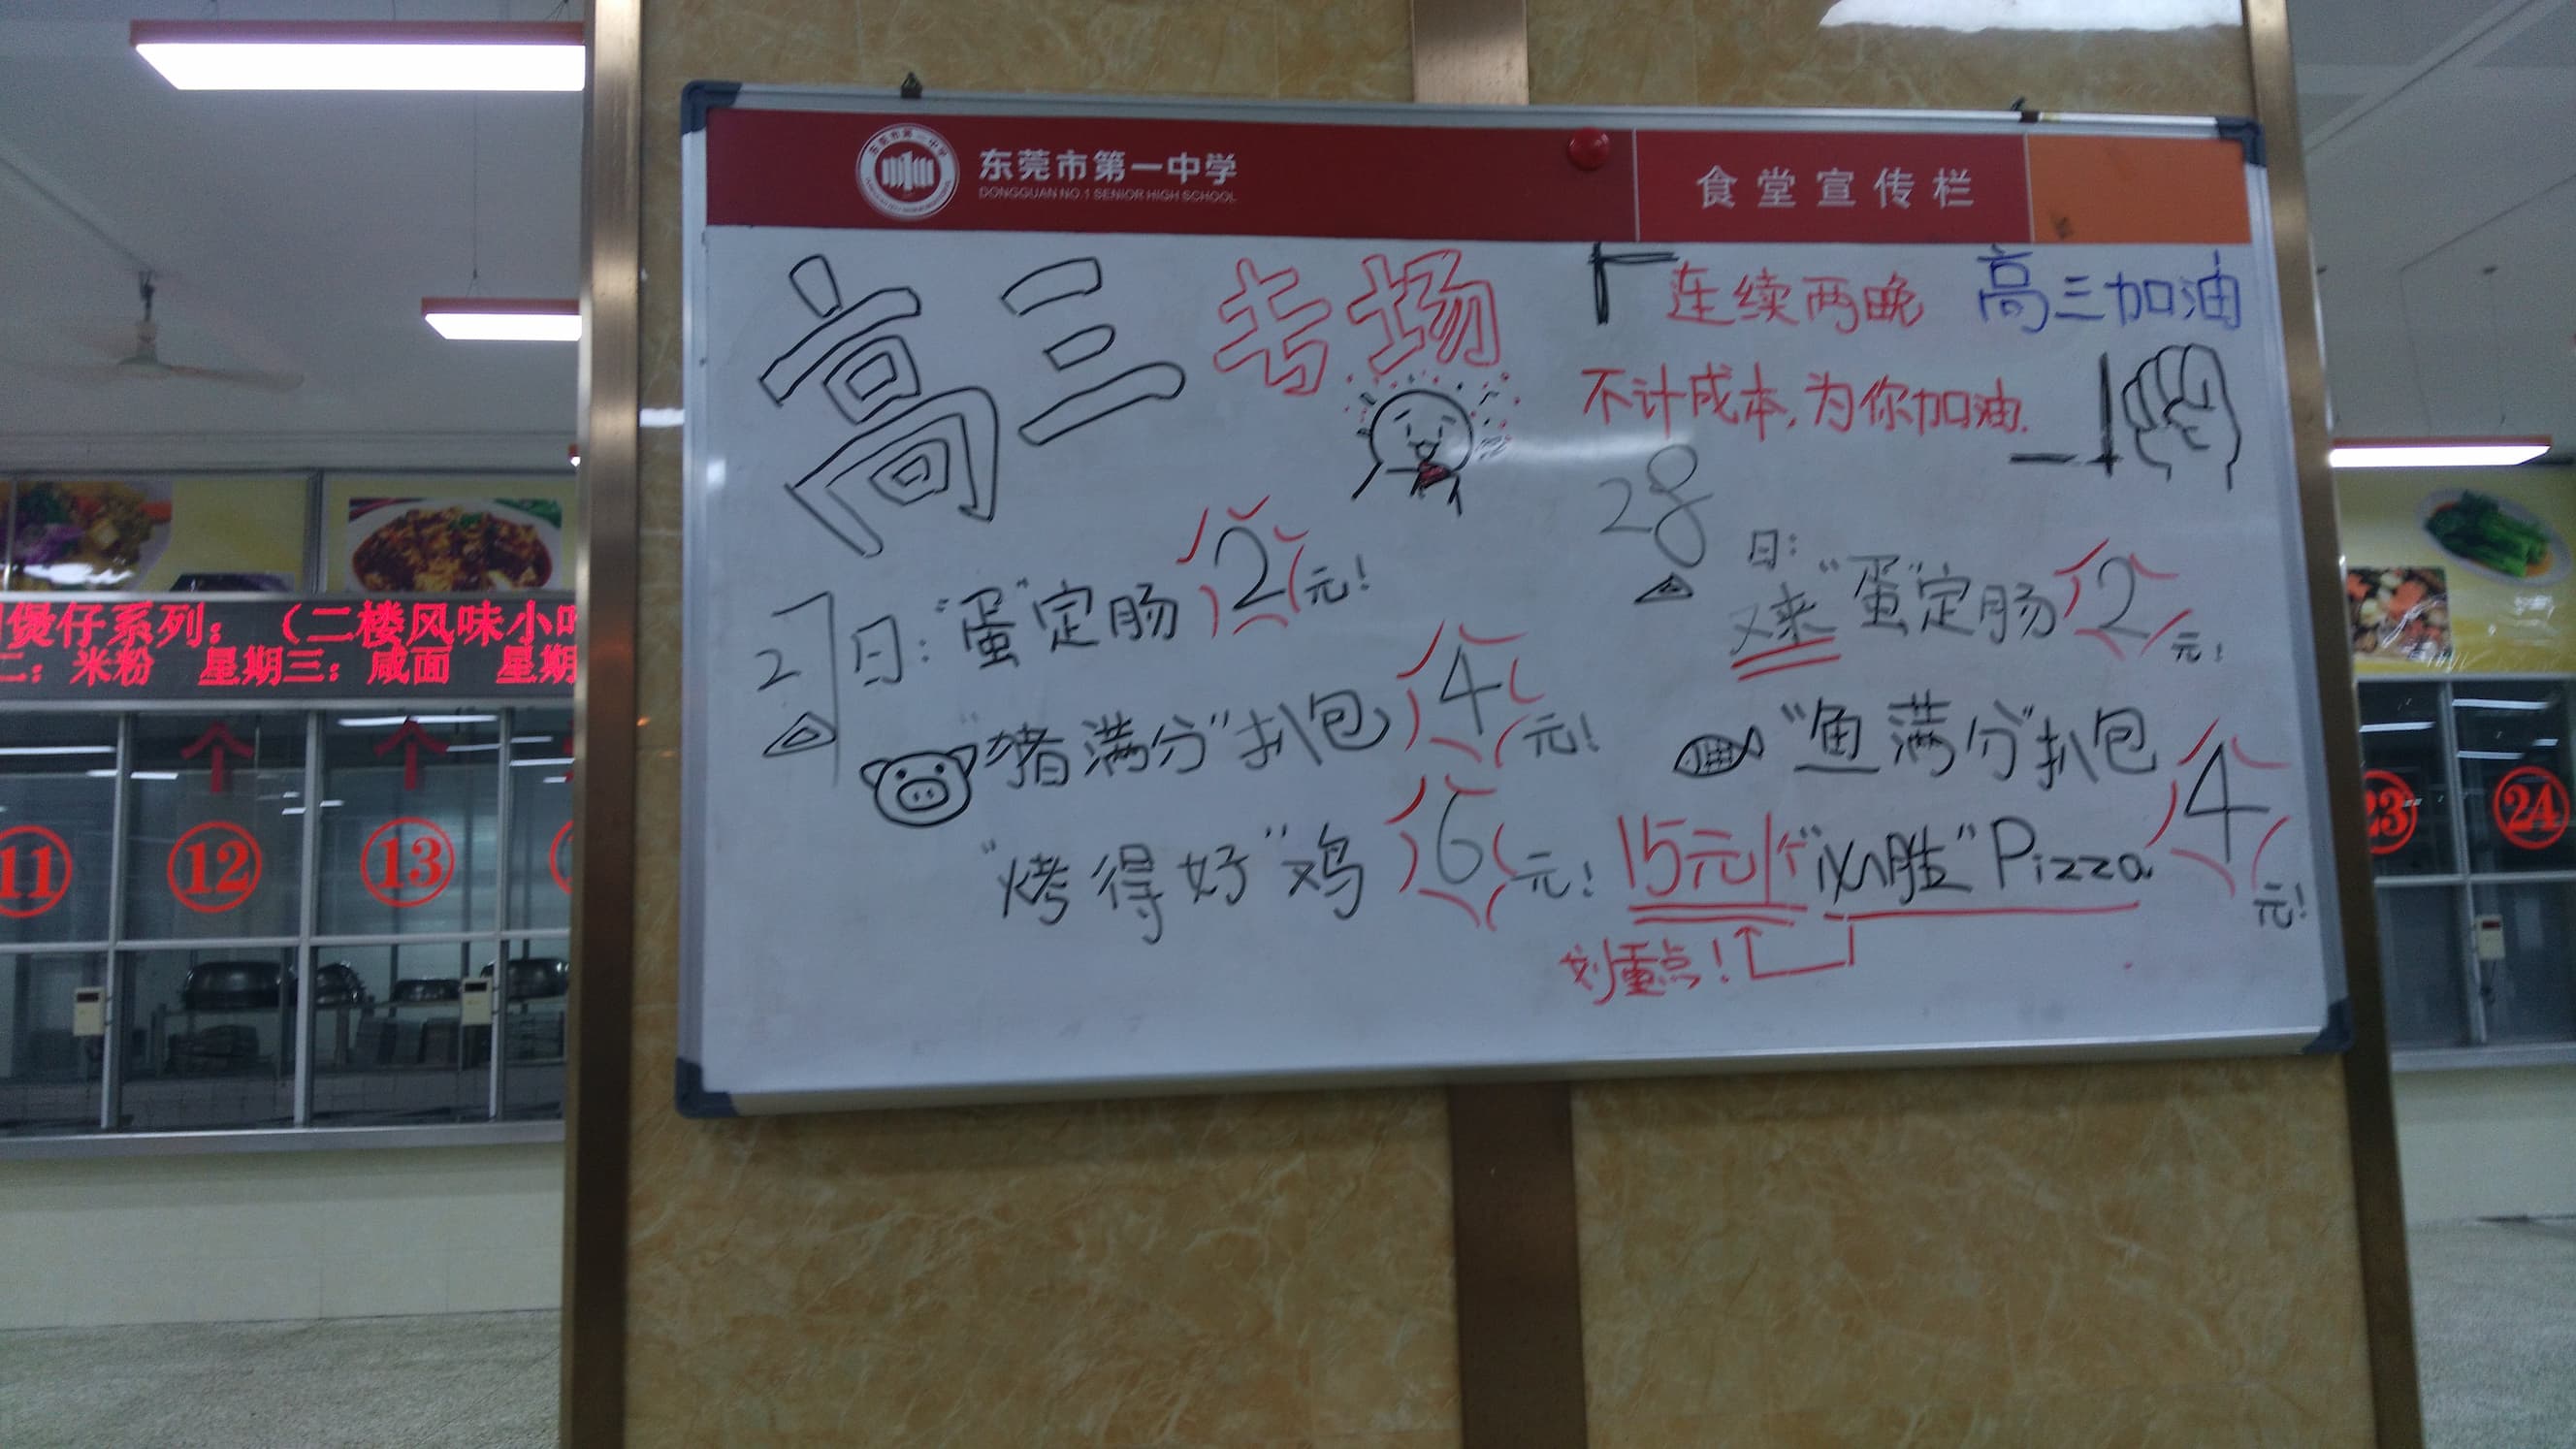 东莞市第一中学
DONGGUAN NO.1 SENIOR HIGH SCHOOL
食堂宣传栏
高三专场
连续两晚 高三加油
不计成本,为你加油.
27日:“蛋”定肠2元!
“猪满分”扒包4元!
“烤得好”鸡6元!
28日:
又来“蛋”定肠2元!
“鱼满分”扒包4元!
15元/个“必胜”Pizza
划重点!
煲仔系列:(二楼风味小吃
二:米粉 星期三:咸面 星期
11
12
13
23
24